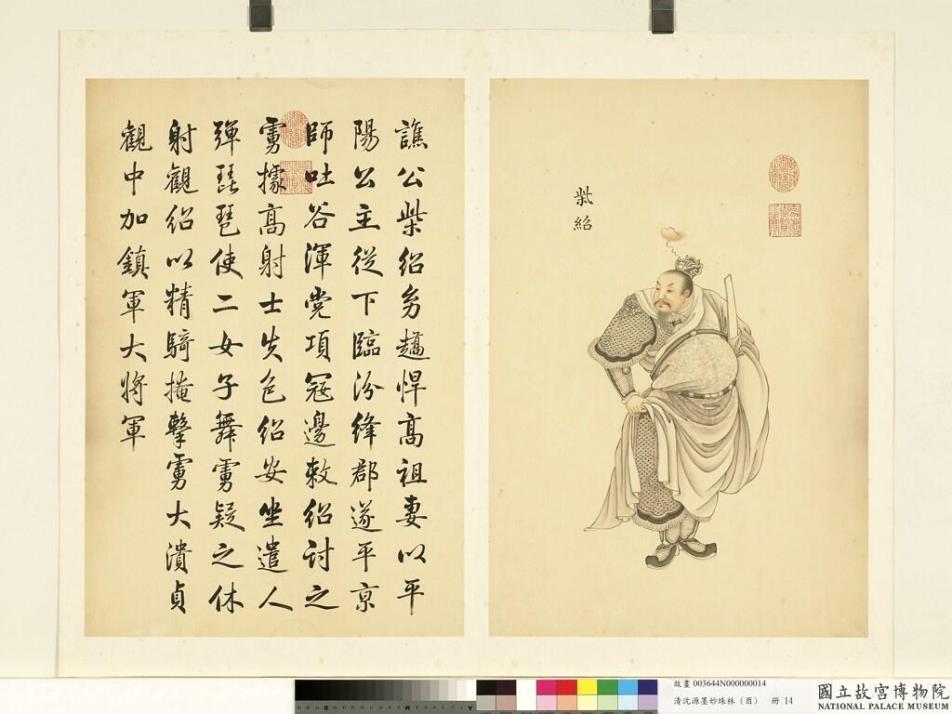 柴紹
譙公柴紹幼趫悍高祖妻以平
陽公主從下臨汾絳郡遂平京
師吐谷渾党項冦邊敕紹討之
虜據高射士失色紹安坐遣人
彈琵琶使二女子舞虜疑之休
射觀紹以精騎掩擊虜大潰貞
觀中加鎮軍大將軍
故畫 003644N000000014
清沈源墨妙珠林(酉) 冊 14
國立故宮博物院
NATIONAL PALACE MUSEUM